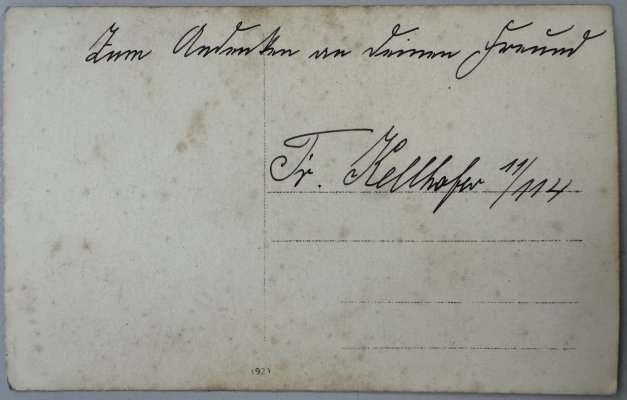 Zum Andenken an deinen Freund
Fr. Kellhofer 11/114
1921